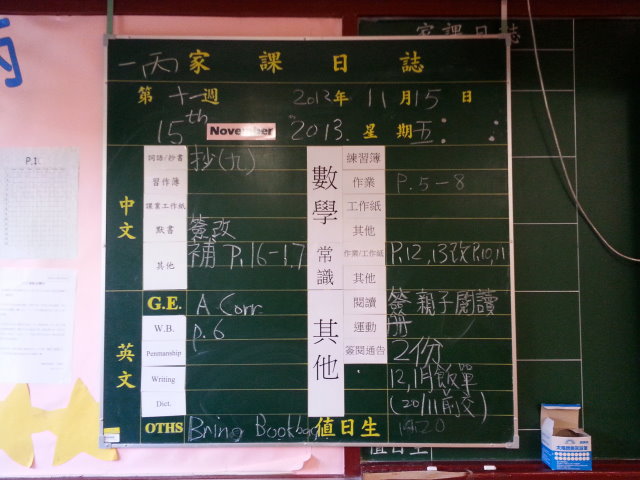 家課日誌
一丙 家課日誌
第十一週 2013年11月15日
15th November 2013. 星期五
P.1
中文
詞語/抄書 抄(九)
習作簿
課業工作紙
默書 簽改
其他 補 P.16-17
G.E. A Corr
英文
W.B. p.6
Penmanship
Writing
Dict.
OTHS Bring Bookbag
數學
練習簿
作業 P.5-8
工作紙
其他
常識
作業/工作紙 P.12,13改P.10,11
其他
其他
閱讀 簽親子閱讀册
運動
簽閱通告 2份
12,1月飯單
(20/11前交)
值日生 20
值日生